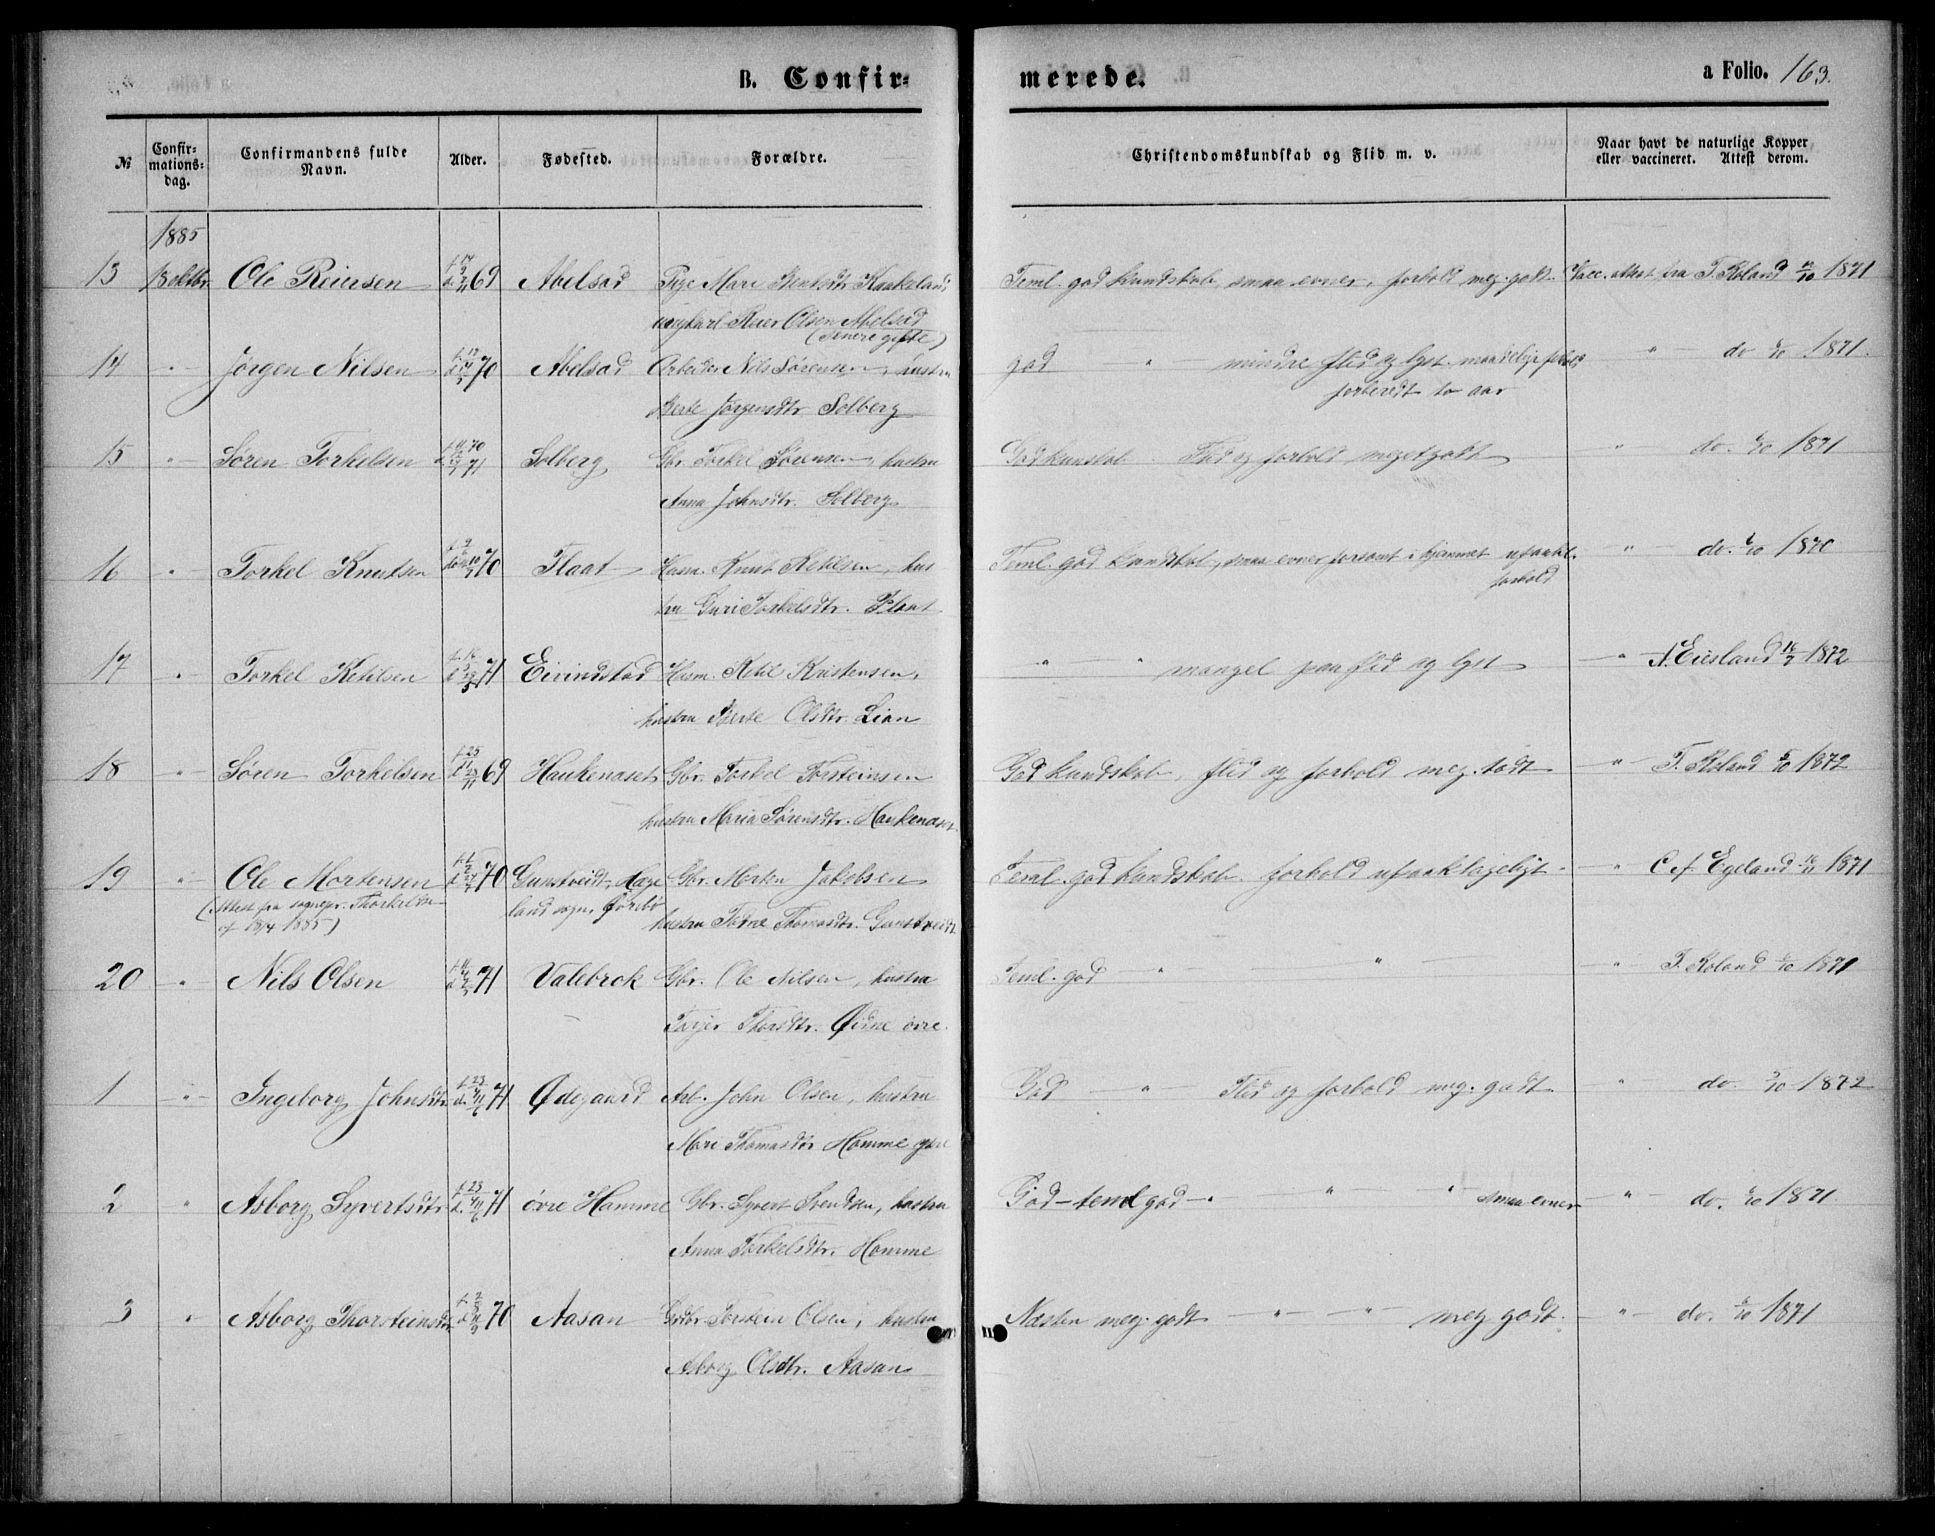 B. Confir-
merede.
a Folio. 163.
№
Confir-
mations-
dag.
Confirmandens fulde
Navn.
Alder.
Fødested.
Forældre.
Christendomskundskab og Flid m. v.
Naar havt de naturlige Kopper
eller vaccineret. Attest derom.
1885
13 18 oktbr Ole Reiersen 69 Abelsad Pige Mari
ungkarl Reier Olsen Abelsad
(senere gifte)
Teml. god kundskab, smaa evner, forhold meg. godt. Vacc. attest fra T. Roland 1871
14 " Jørgen Nilsen 70 Abelsad Arbeider Nils Sørensen, hustru
Berte Jørgensdtr Solberg
god " mindre flid og lyst
forberedt to aar
" do 1871.
15 " Søren Torkelsen 70 71 Solberg Gbr. Torkel Sørensen, hustru
Anna Johnsdtr. Solberg
God kundskab Flid og forhold meget godt " do. 1871
16 " Torkel Knutsen 70 Flaat Husm. Knut Ketilsen, hus
tru Guri Torkelsdtr. Flaat
Teml. god kundskab, smaa evner forsømt i hjemmet
forhold
" do. 1870
17 " Torkel Ketilsen 71 Eivindstad Husm. Ketil Kristensen,
hustru Berte Olsdtr. Lian
" " mangel paa flid og lyst " Eiesland 1872
18 " Søren Torkelsen 69 Haukenæset Gbr. Torkel Torsteinsen
hustru Maria Sørensdtr. Haukenæset
God kundskab, flid og forhold meg. godt " T. Roland 1872
19 " Ole Mortensen 70 Gunstveidt, Hæge
land sogn, Øvrebø
(Attest fra sognepr. Thorkildsen
af 18/4 1885)
Gbr. Morten Jakobsen
hustru Torne Thomasdtr. Gunstveidt
Teml. god kundskab forhold upaaklageligt " Egeland 1871
20 " Nils Olsen 71 Valebrok Gbr. Ole Nilsen, hustru
Thorsdtr. Øidne øvre
Teml. god " " " T. Roland 1871
1 " Ingeborg Johnsdtr 71 Ødegaard Arb. John Olsen, hustru
Mari Thomasdtr Homme
God " Flid og forhold meg. godt " do 1872
2 " Asborg Syvertsdtr 71 øvre Homme Gbr. Syvert Svendsen, hustru
Anna Torkelsdtr. Homme
God - teml god " " smaa evner " do. 1871.
3 " Asborg Thorsteinsdtr 70 Aasan Gbr. Torstein Olsen, hustru
Asborg Olsdtr. Aasan
Næsten meg. godt " " meg godt. " do. 1871